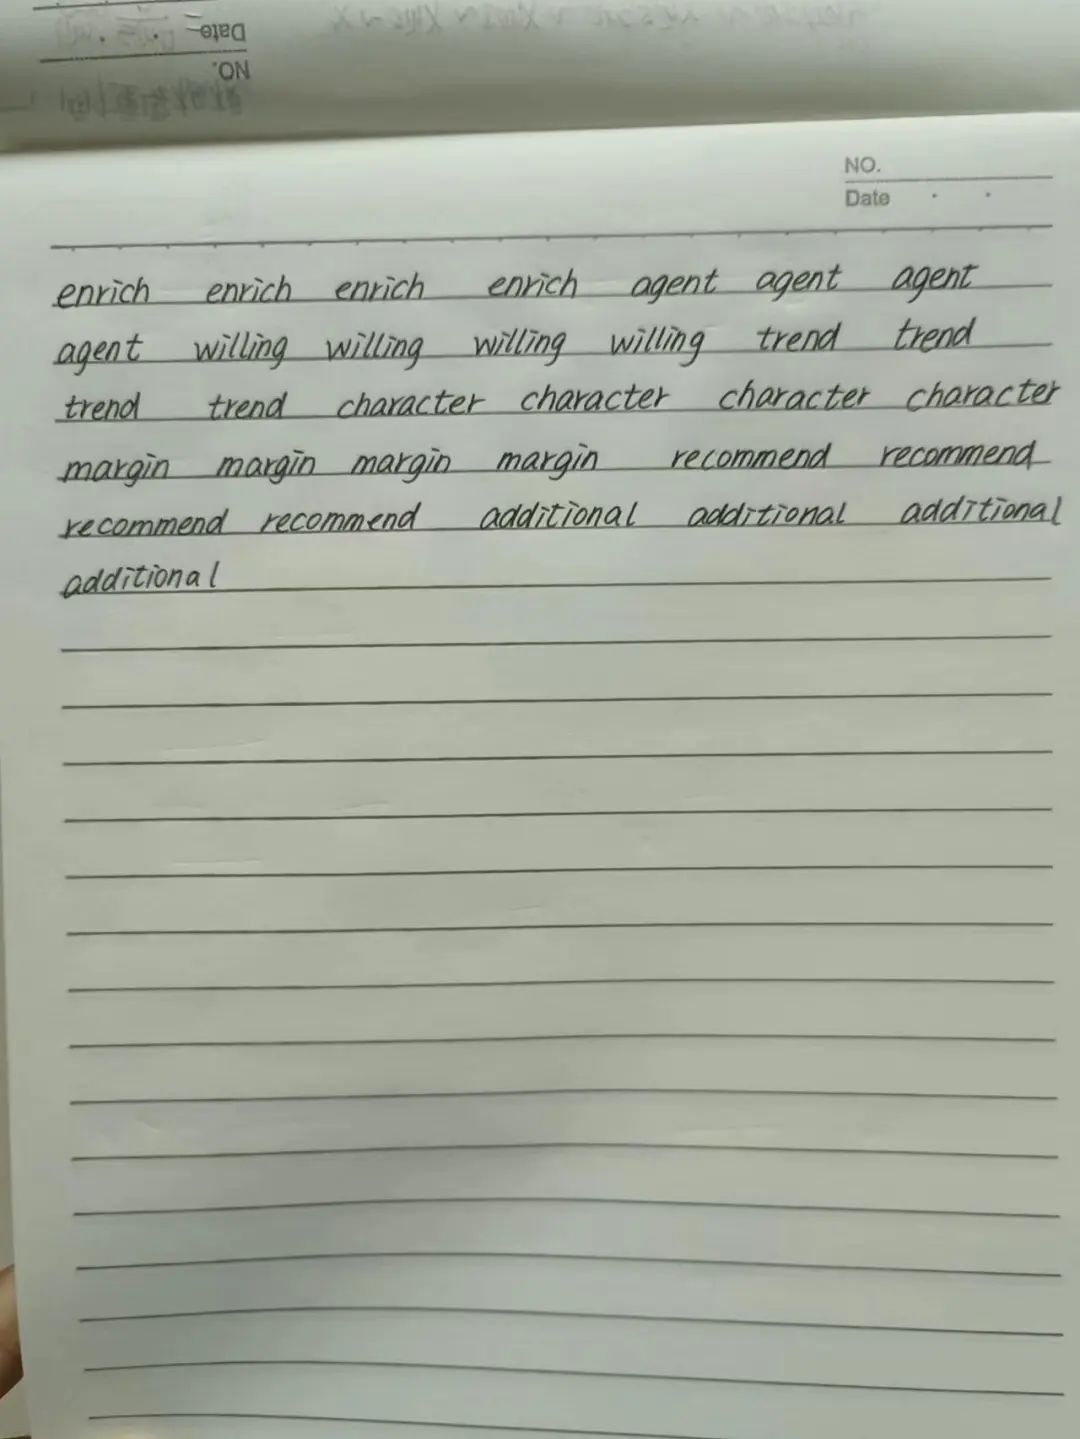 Date
NO.
NO.
Date
enrich enrich enrich enrich agent agent agent
agent willing willing willing willing trend trend
trend trend character character character character
margin margin margin margin recommend recommend
recommend recommend additional additional additional
additional